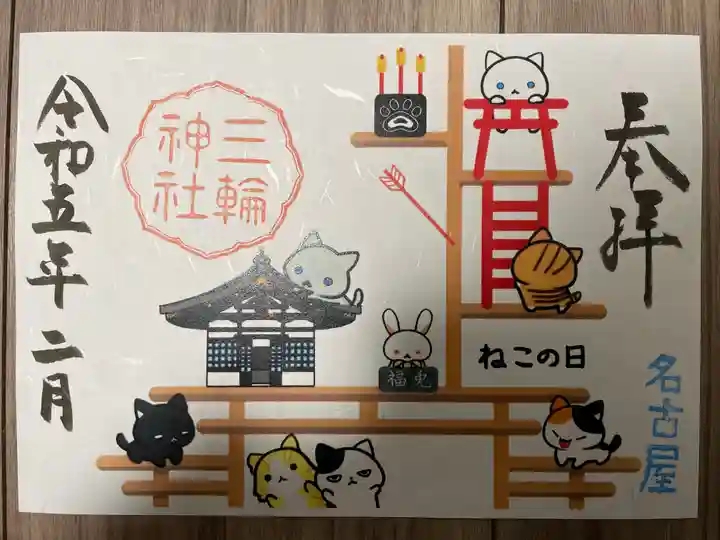 奉拝
名古屋
三輪
神社
福兎
ねこの日
令和五年二月